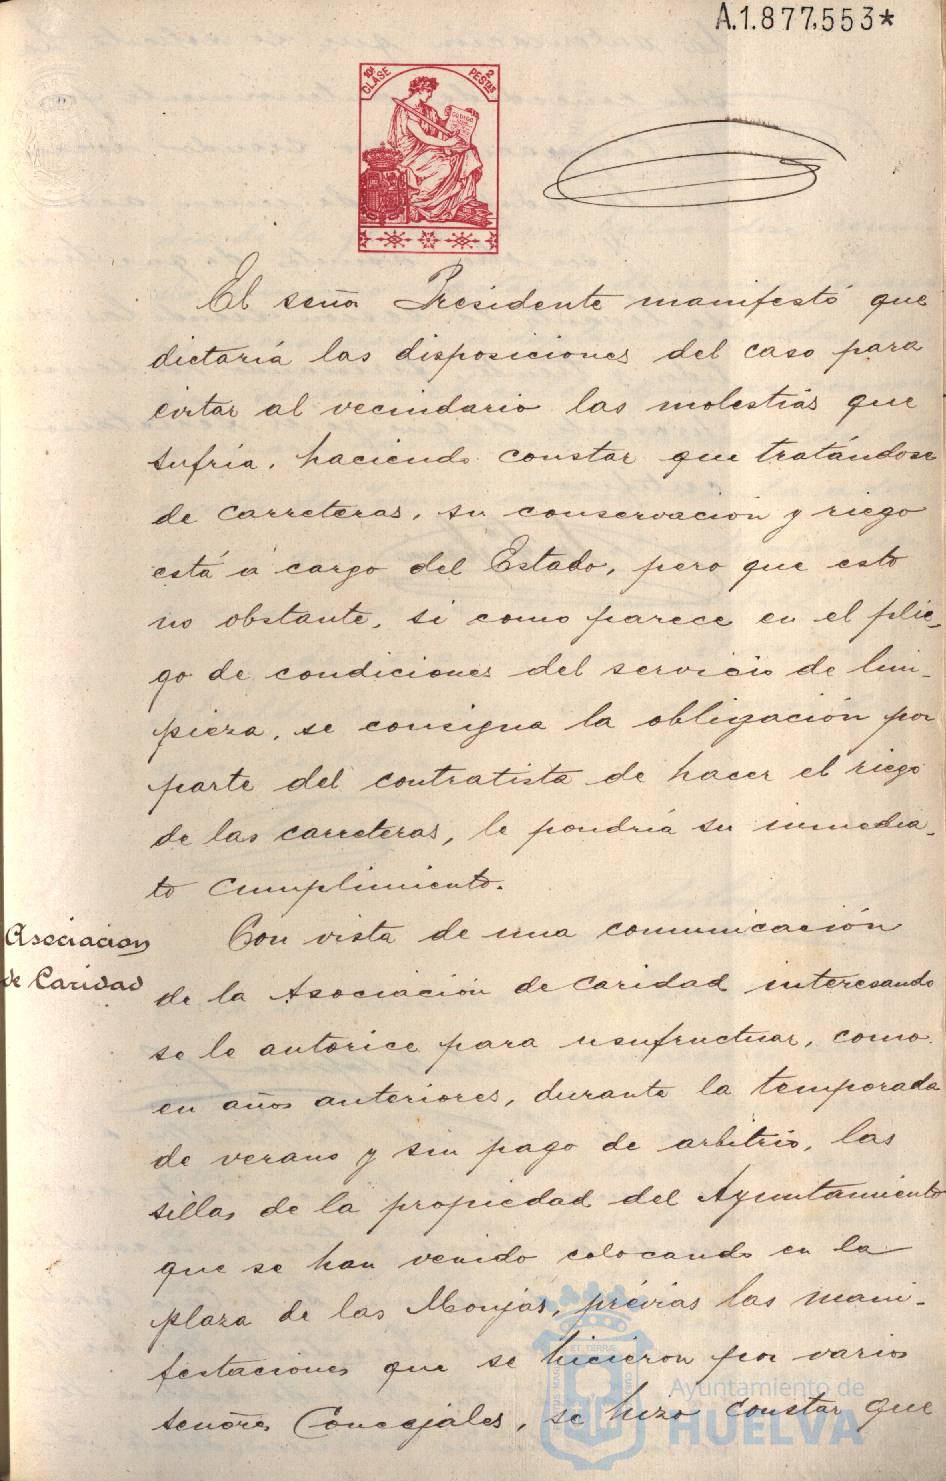 A.1.877,553*
10ª CLASE
2 PESTAS
El señor Presidente manifestó que
dictaría las disposiciones del caso para
evitar al vecindario las molestias que
sufría, haciendo constar que tratándose
de carreteras, su conservación y riego
está á cargo del Estado, pero que esto
no obstante, si como parece en el plie-
go de condiciones del servicio de lim-
pieza, se consigna la obligación por
parte del contratista de hacer el riego
de las carreteras, le pondría su inmedia-
to cumplimiento.
Asociacion
de Caridad
Con vista de una comunicación
de la Asociación de Caridad interesando
se le autorice para usufructuar, como
en años anteriores, durante la temporada
de verano y sin pago de arbitrio, las
sillas de la propiedad del Ayuntamiento
que se han venido colocando en la
plaza de las Monjas, prévias las mani-
festaciones que se hicieron por varios
señores Concejales, se hizo constar que
Ayuntamiento de
HUELVA